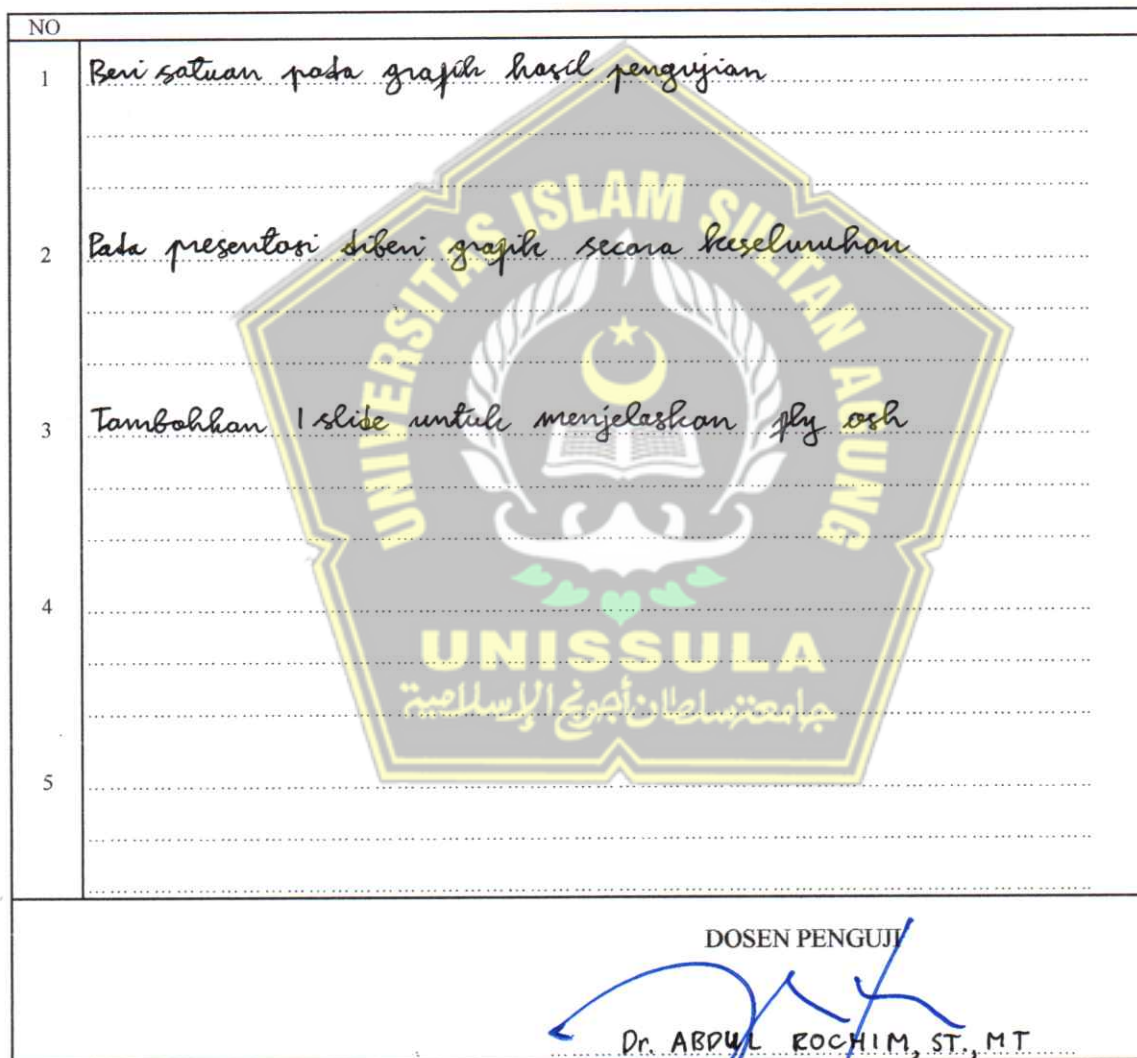 NO
1 Beri satuan pada grafik hasil pengujian
2 Pada presentasi diberi grafik secara keseluruhan
3 Tambahkan 1 slide untuk menjelaskan fly ash
4
5
UNIVERSITAS ISLAM SULTAN AGUNG
UNISSULA
جامعة سلطان أجونج الإسلامية
DOSEN PENGUJI
Dr. ABDUL ROCHIM, ST., MT